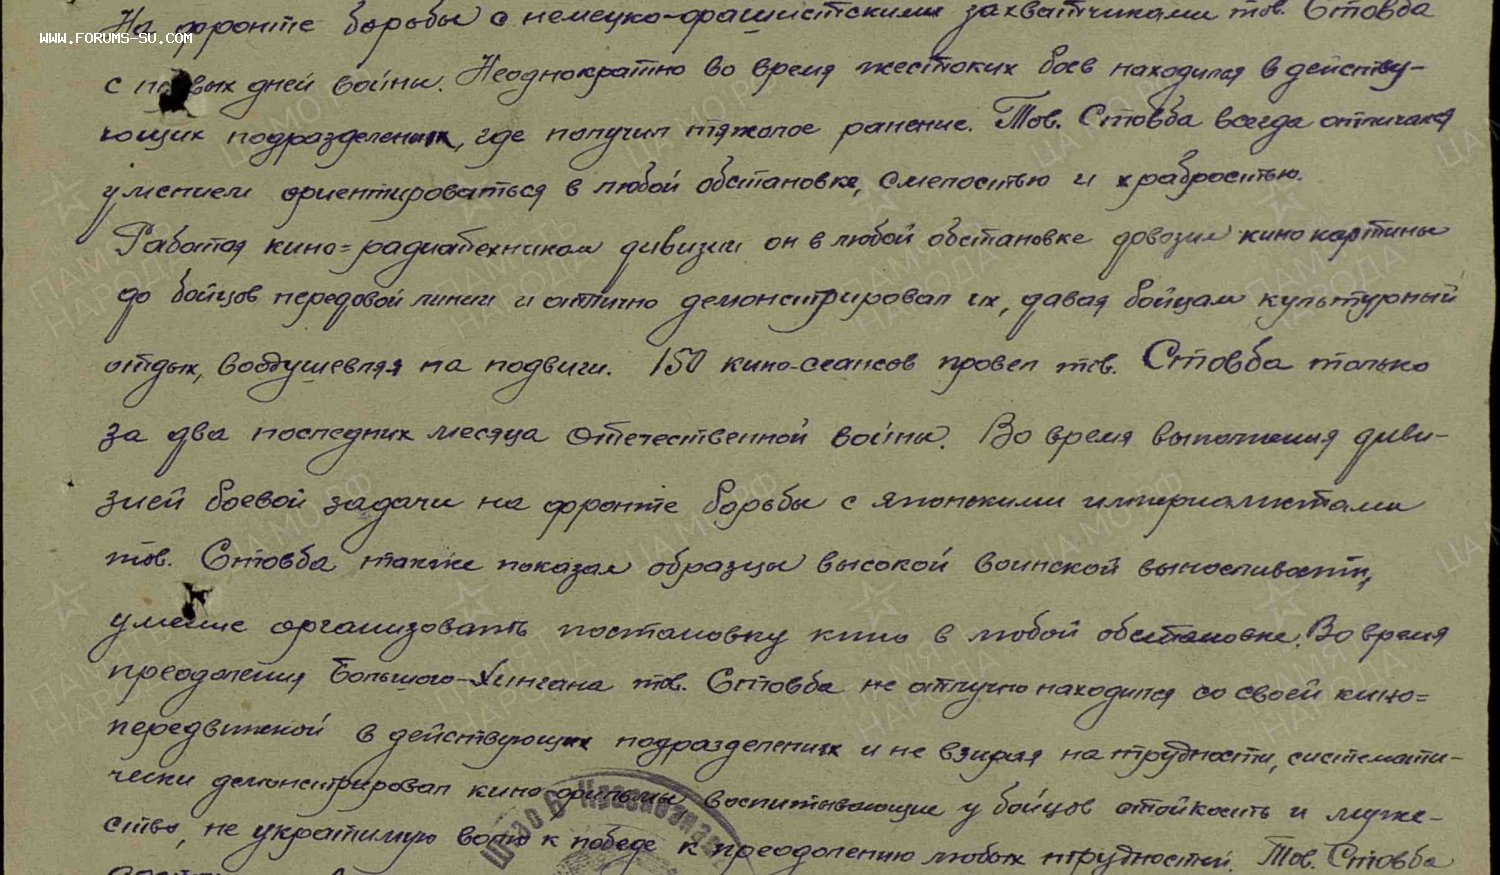 На фронте борьбы с немецко-фашистскими захватчиками тов. Стовба
WWW.FORUMS-SU.COM
с первых дней войны. Неоднократно во время жестоких боев находился в действу-
ющих подразделениях, где получил тяжолое ранение. Тов. Стовба всегда отличался
умением ориентироваться в любой обстановке, смелостью и храбростью.
Работая кино=радиотехником дивизии он в любой обстановке довозил кино картины
до бойцов передовой линии и отлично демонстрировал их, давая бойцам культурный
отдых, воодушевляя на подвиги. 150 кино-сеансов провел тов. Стовба только
за два последних месяца Отечественной войны. Во время выполнения диви-
зией боевой задачи на фронте борьбы с японскими империалистами
тов. Стовба также показал образцы высокой воинской выносливости,
умение организовать постановку кино в любой обстановке. Во время
преодоления Большого-Хингана тов. Стовба не отлучно находился со своей кино=
передвижкой в действующих подразделениях и не взирая на трудности, системати-
чески демонстрировал кино-фильмы воспитывающие у бойцов стойкость и муже-
ство, не укратимую волю к победе к преодолению любых трудностей. Тов. Стовба